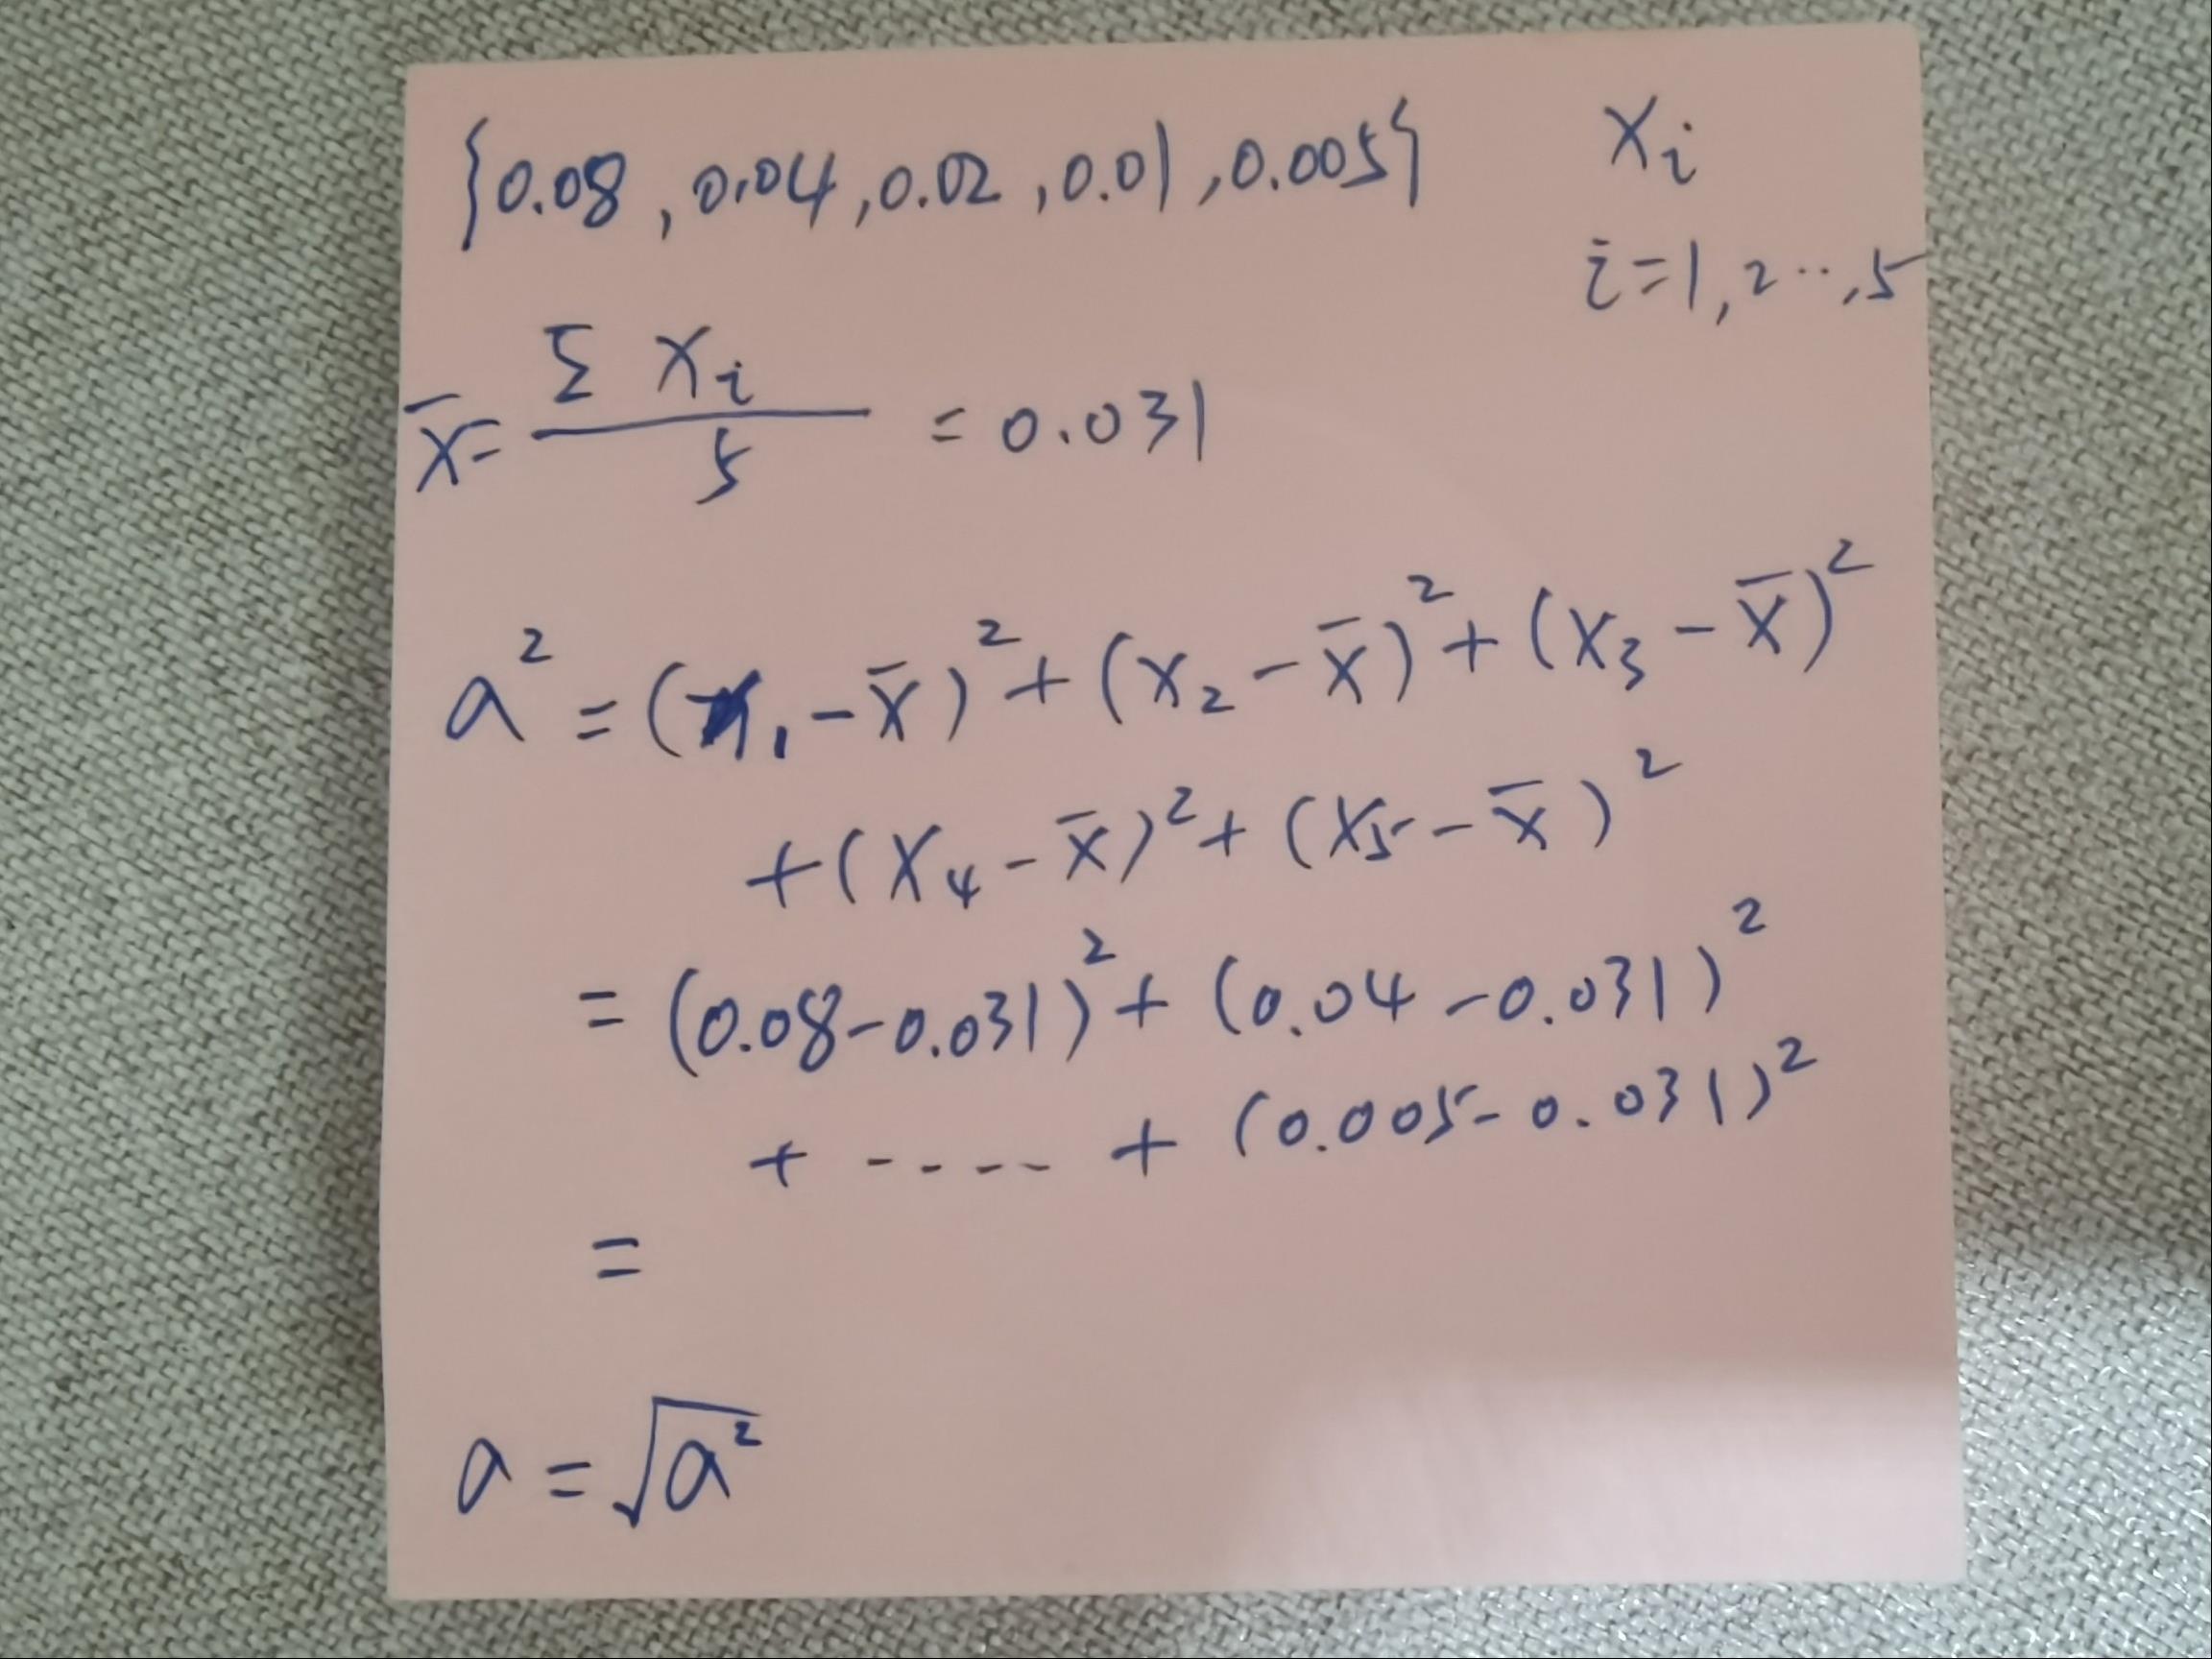 {0.08, 0.04, 0.02, 0.01, 0.005} xᵢ
i=1,2…,5
x̄ = Σ xᵢ / 5 = 0.031
a² = (x₁ - x̄)² + (x₂ - x̄)² + (x₃ - x̄)²
+ (x₄ - x̄)² + (x₅ - x̄)²
= (0.08-0.031)² + (0.04-0.031)²
+ ----- + (0.005-0.031)²
=
a = √a²